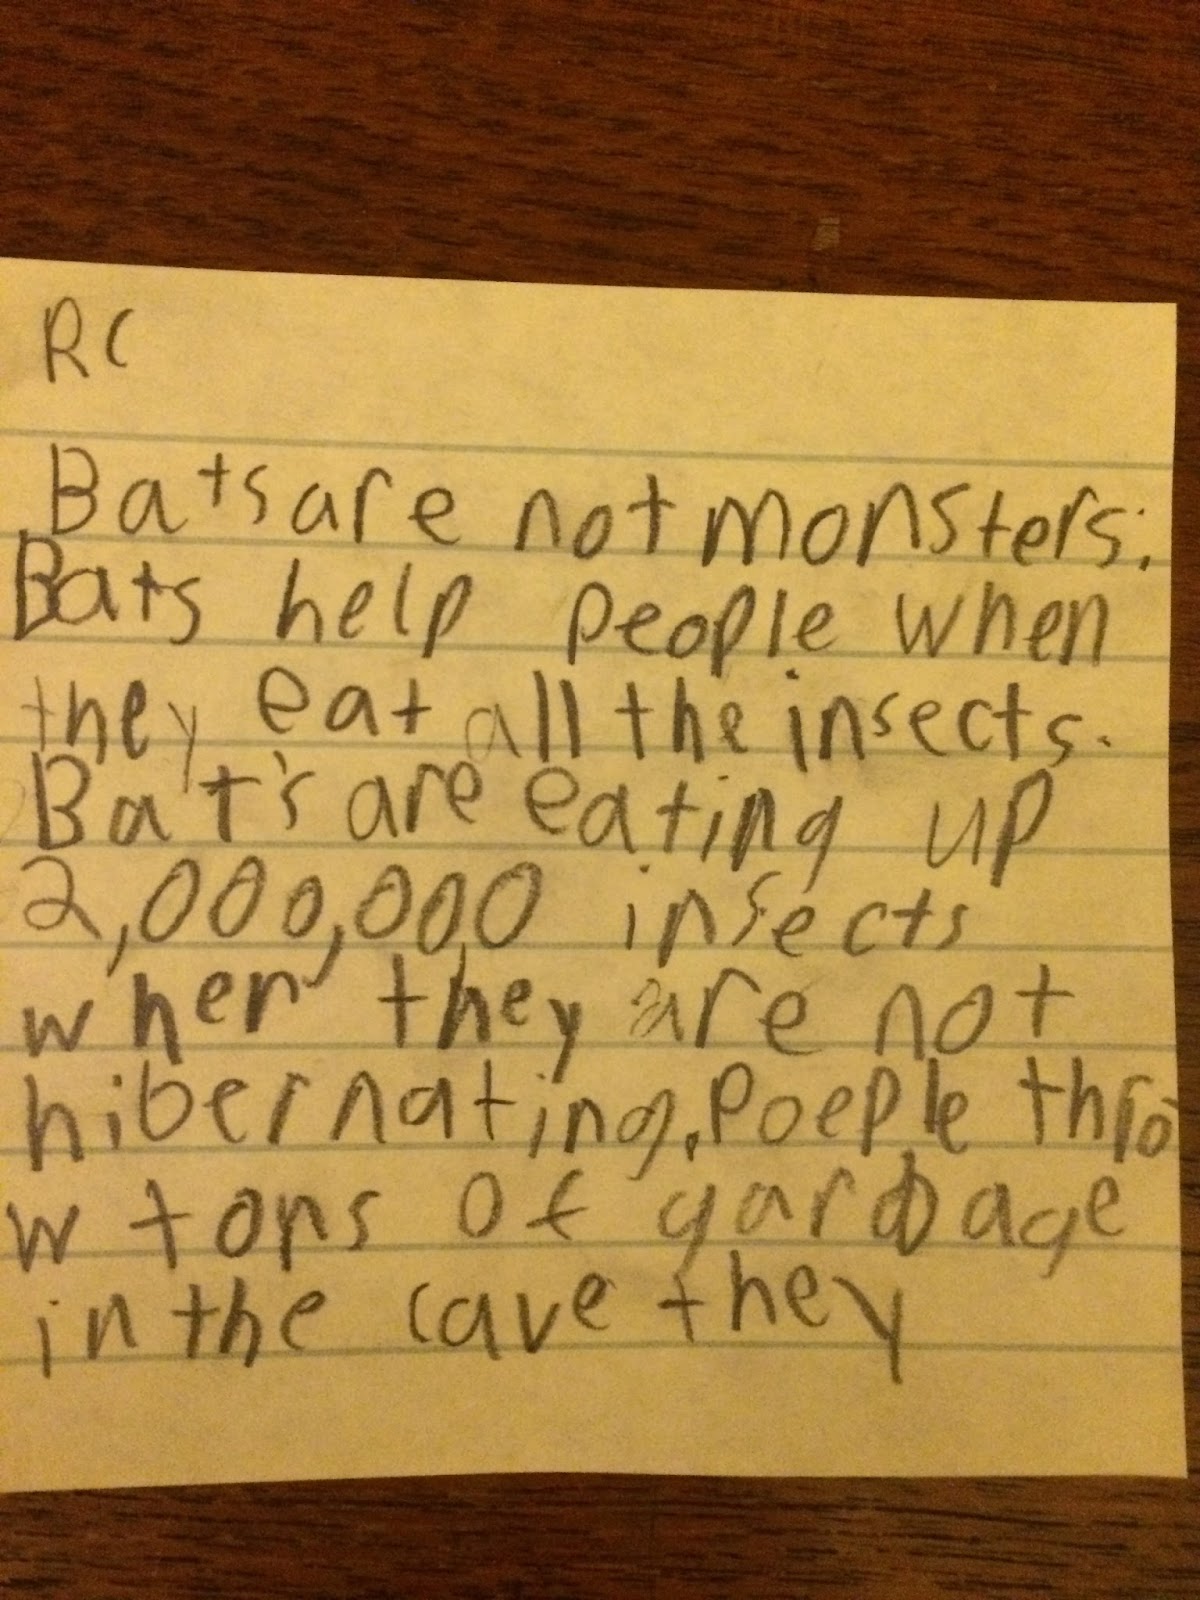 RC
Bats are not monsters;
Bats help people when
they eat all the insects.
Bat's are eating up
2,000,000 insects
when they are not
hibernating. Poeple thro
w tons of garbage
in the cave they